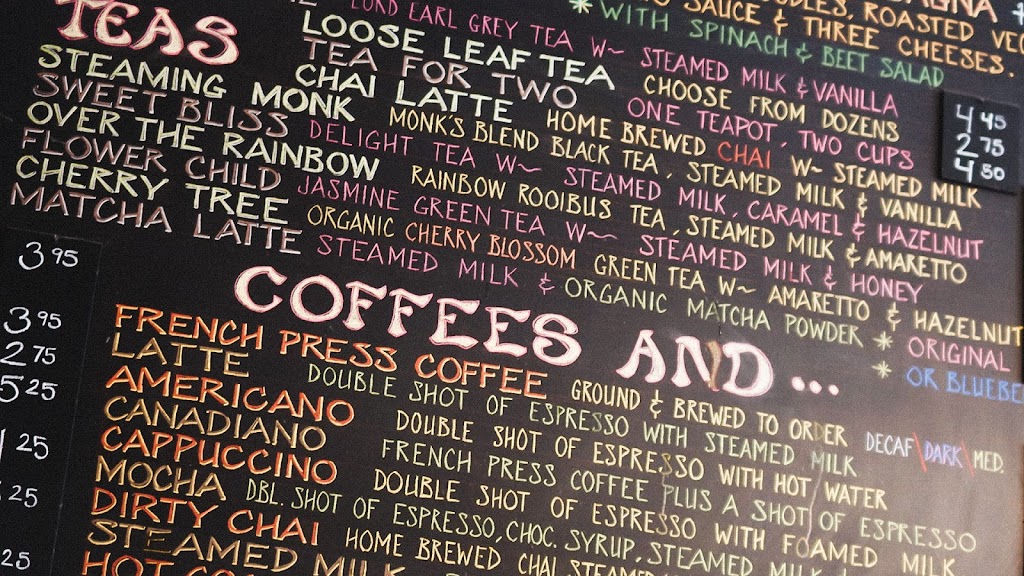 SAUCE & THREE CHEESES.
NOODLES, ROASTED
* WITH SPINACH & BEET SALAD
TEAS
LORD EARL GREY TEA W~ STEAMED MILK & VANILLA
LOOSE LEAF TEA CHOOSE FROM DOZENS 4 45
TEA FOR TWO ONE TEAPOT, TWO CUPS 2 75
CHAI LATTE HOME BREWED CHAI W~ STEAMED MILK 4 50
STEAMING MONK MONK'S BLEND BLACK TEA, STEAMED MILK & VANILLA
SWEET BLISS DELIGHT TEA W~ STEAMED MILK, CARAMEL & HAZELNUT
OVER THE RAINBOW RAINBOW ROOIBUS TEA, STEAMED MILK & AMARETTO
FLOWER CHILD JASMINE GREEN TEA W~ STEAMED MILK & HONEY
CHERRY TREE ORGANIC CHERRY BLOSSOM GREEN TEA W~ AMARETTO & HAZELNUT
MATCHA LATTE STEAMED MILK & ORGANIC MATCHA POWDER * ORIGINAL
* OR BLUEBE
COFFEES AND...
3 95
3 95 FRENCH PRESS COFFEE GROUND & BREWED TO ORDER DECAF\DARK\MED.
2 75 LATTE DOUBLE SHOT OF ESPRESSO WITH STEAMED MILK
5 25 AMERICANO DOUBLE SHOT OF ESPRESSO WITH HOT WATER
CANADIANO FRENCH PRESS COFFEE PLUS A SHOT OF ESPRESSO
25 CAPPUCCINO DOUBLE SHOT OF ESPRESSO WITH FOAMED MILK
25 MOCHA DBL. SHOT OF ESPRESSO, CHOC. SYRUP, STEAMED
DIRTY CHAI HOME BREWED CHAI
25 STEAMED MILK
HOT